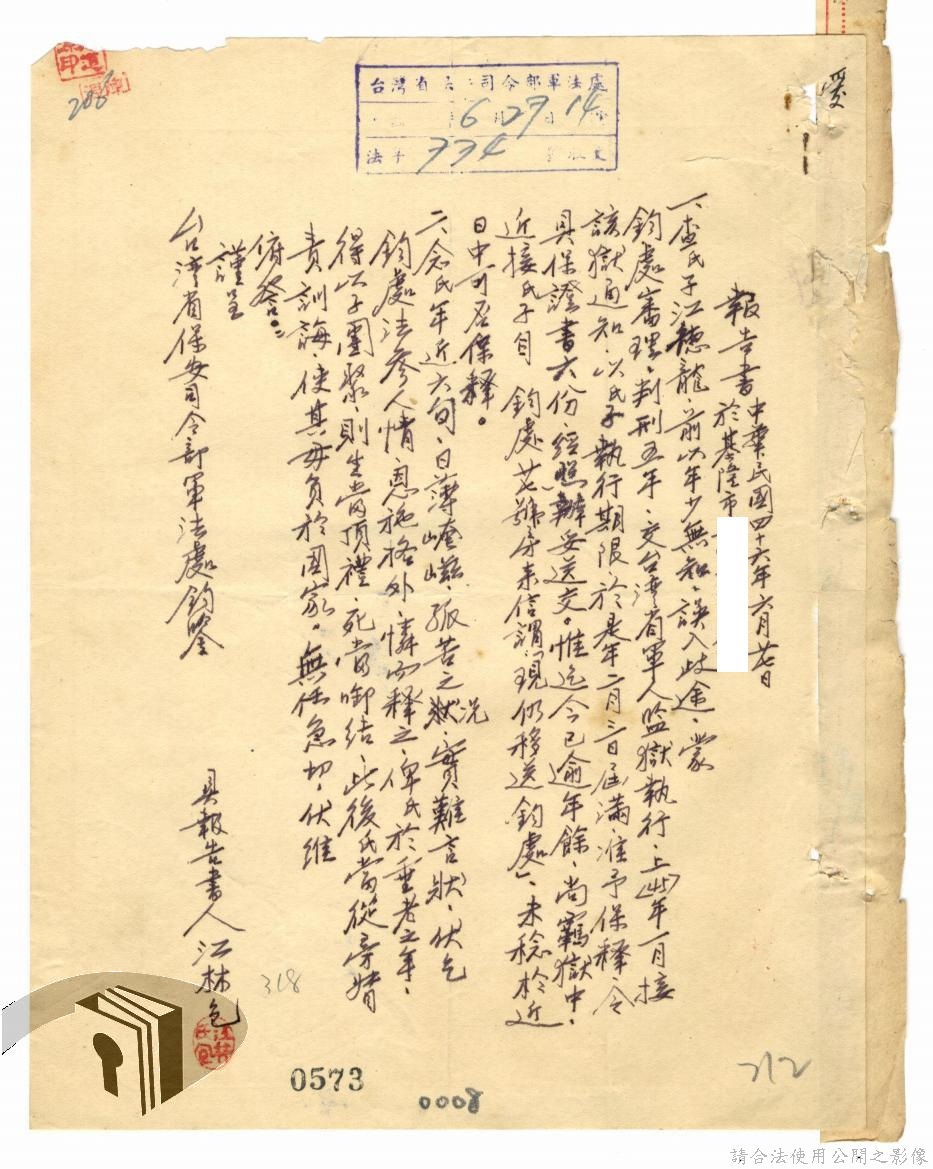 報告書 中華民國四十六年六月廿七日
於基隆市
一、查氏子江聰龍、前以年少無知、誤入歧途、蒙
鈞處審理、判刑五年、交台灣省軍人監獄執行、上(45)年一月接
該獄通知、以氏子執行期限於是年二月三日屆滿、准予保釋、令
具保證書六份、經照辦妥送交。惟迄今已逾年餘、尚羈獄中、
近接氏子自 鈞處廿七號房來信謂「現仍移送鈞處」、未稔於近
日中可否保釋。
二、念氏年近六旬、日薄崦嵫、孤苦之狀況、實難言狀、伏乞
鈞處法參人情、恩施格外、憐而釋之、俾氏於垂老之年、
得以子團聚、則生當頂禮、死當啣結、此後氏當從旁督
責訓誨、使其毋負於國家。無任急切、伏維
俯詧。
謹呈
台灣省保安司令部軍法處鈞鑒
具報告書人 江林色
台灣省 司令部軍法處
6 月 27 日 14 時
法字 734 號收文
208
318
0573
0008
212
請合法使用公開之影像